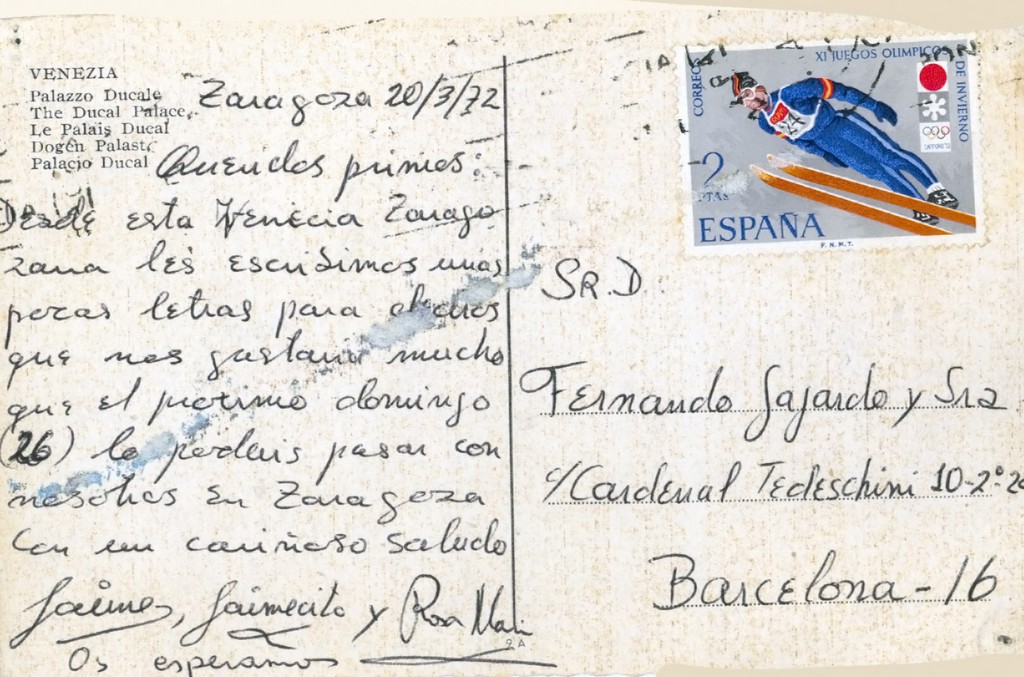 VENEZIA
Palazzo Ducale
The Ducal Palace
Le Palais Ducal
Dogen Palast
Palacio Ducal
Zaragoza 20/3/72
Queridos primos:
Desde esta Venecia Zarago
zana les escribimos unas
pocas letras para deciros
que nos gustaria mucho
que el proximo domingo
(26) lo podeis pasar con
nosotros en Zaragoza
Con un cariñoso saludo
Jaime, Jaimecito y Rosa Mari
Os esperamos
CORREOS
XI JUEGOS OLIMPICOS
DE INVIERNO
SAPPORO'72
2
PTAS
ESPAÑA
F.N.M.T.
SR. D
Fernando Gajardo y Sra
c/Cardenal Tedeschini 10-2º 2ª
Barcelona-16